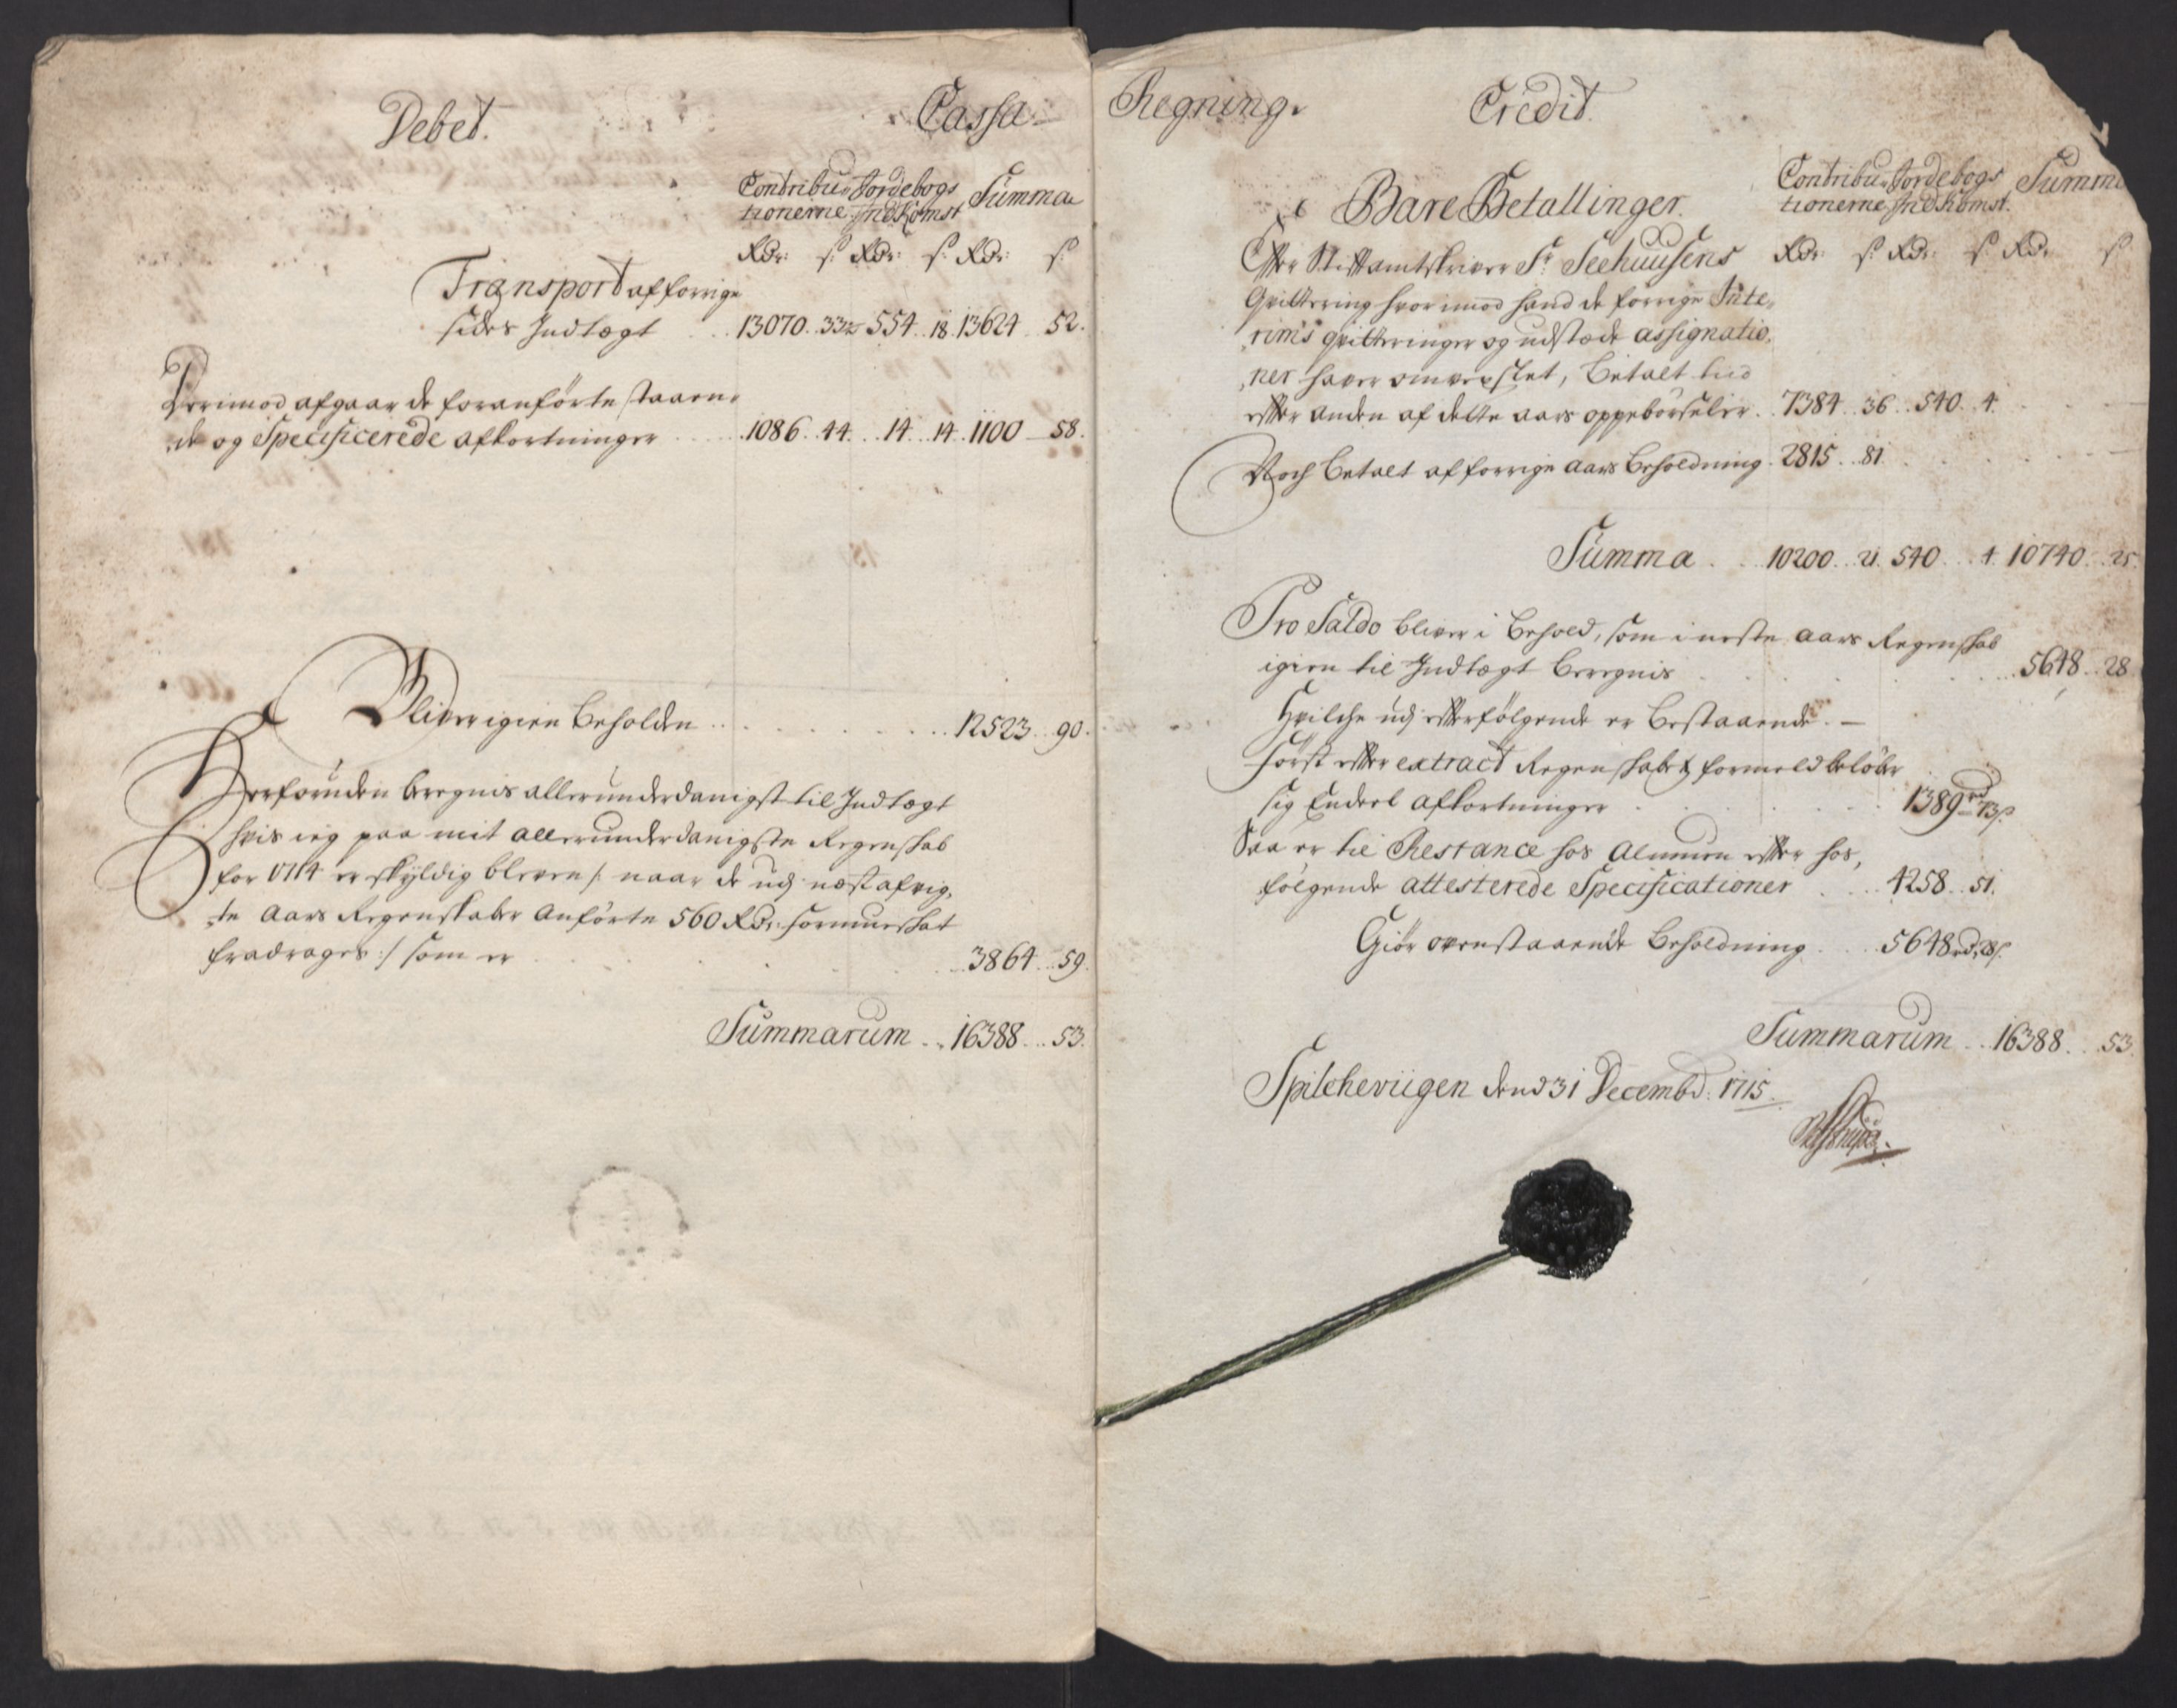 Debet.
Cassa
Contribu- Jordebogs Summa
tionerne Indkomst
Rdr: s. Rdr: s. Rdr: s
Transport af forrige
sides Indtægt .. 13070 .. 33½ 554 .. 18. 13624 .. 52.
Derimod afgaar de foranførte staaen-
de og Specificerede afkortninger .... 1086 .. 44 .. 14 .. 14 .. 1100 .. 58.
Bliver igien beholden .. 12523 .. 90.
Herforuden beregnis allerunderdanigst til Indtægt
hvis ieg paa mit allerunderdanigste Regenskab
for 1714 er skyldig bleven /: naar de udj næst afvig-
te aars Regenskaber anførte 560 Rdr: formueskat
fradrages :/ som er .. 3864 .. 59.
Summarum .. 16388 .. 53.
Regning.
Credit.
Contribu- Jordebogs Summa
tionerne Indkomst.
Bare Betallinger.
Rdr: s. Rdr: s Rdr: s
Efter Stiftamtskriver Sr Seehuusens
Qvittering hvor imod hand de forrige Inte-
rims qvitteringer og udstæde assignatio-
ner haver omvexlet, betalt tid
efter anden af dette aars oppebørseler .. 7384 .. 36 .. 540 .. 4.
Noch betalt af forrige aars beholdning. 2815 .. 81
Summa .. 10200 .. 21. 540 .. 4. 10740 .. 25.
Pro Saldo bliver i behold, som i neste aars Regenskab
igien til Indtægt beregnis .. 5648 .. 28
Hvilche udj efterfølgende er bestaaende. —
først efter extract Regenskabet formeld beløber
sig Endeel afkortninger .. 1389 rd 73 s
Saa er til Restance hos Almuen efter hos-
følgende attesterede Specificationer .. 4258 .. 51.
Giør ovenstaaende beholdning .. 5648 rd, 28 s.
Summarum .. 16388 .. 53.
Spilcheviigen dend 31 Decembd: 1715.